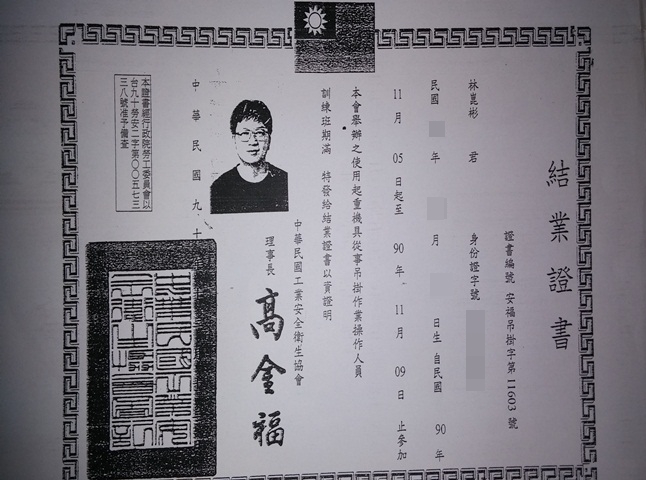 結業證書
證書編號 安福吊掛字第 11603 號
林崑彬 君 身份證字號
民國 年 月 日生 自民國 90 年
11 月 05 日起至 90 年 11 月 09 日止參加
本會舉辦之使用起重機具從事吊掛作業操作人員
訓練班期滿 特發給結業證書以資證明
中華民國工業安全衛生協會
理事長 高金福
中華民國九十
本證書經行政院勞工委員會以
台九十勞安二字第〇〇五七三
三八號准予備查